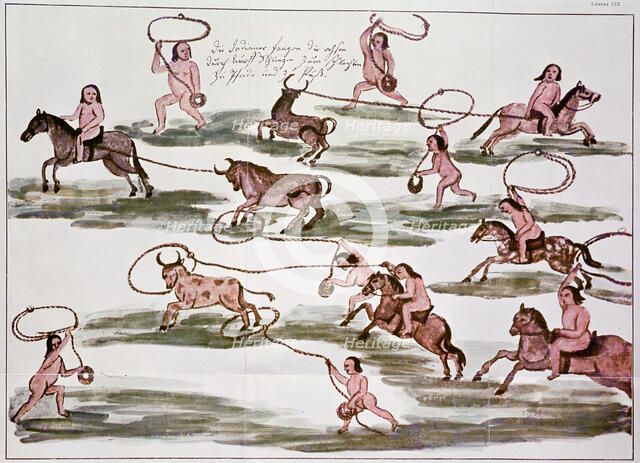 LÁMINA CIX
Die Indianer fangen die ochsen
durch wurff Schlingen zum schlachten
zu Pferde und zu Fuß.
Heritage
Heritage
Heritage
Heritage
Heritage
Heritage